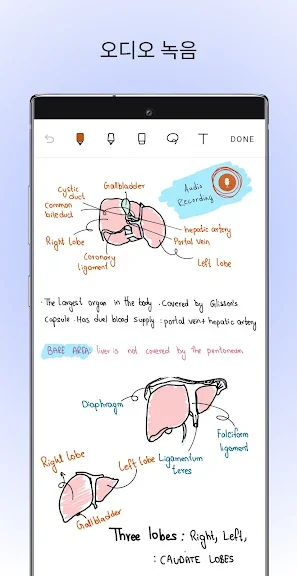 오디오 녹음
T
DONE
Cystic
duct
Gallbladder
Common
bile duct
Audio
Recording
hepatic artery
Portal vein
Right lobe
Coronary
ligament
Left lobe
· The largest organ in the body · Covered by Glisson's
Capsule · Has duel blood supply : portal vein + hepatic artery
BARE AREA: liver is not covered by the peritoneum
Diaphragm
Falciform
ligament
Right lobe
Left lobe
Ligamentum
teres
Gallbladder
Three lobes : Right, Left,
: CAUDATE LOBES